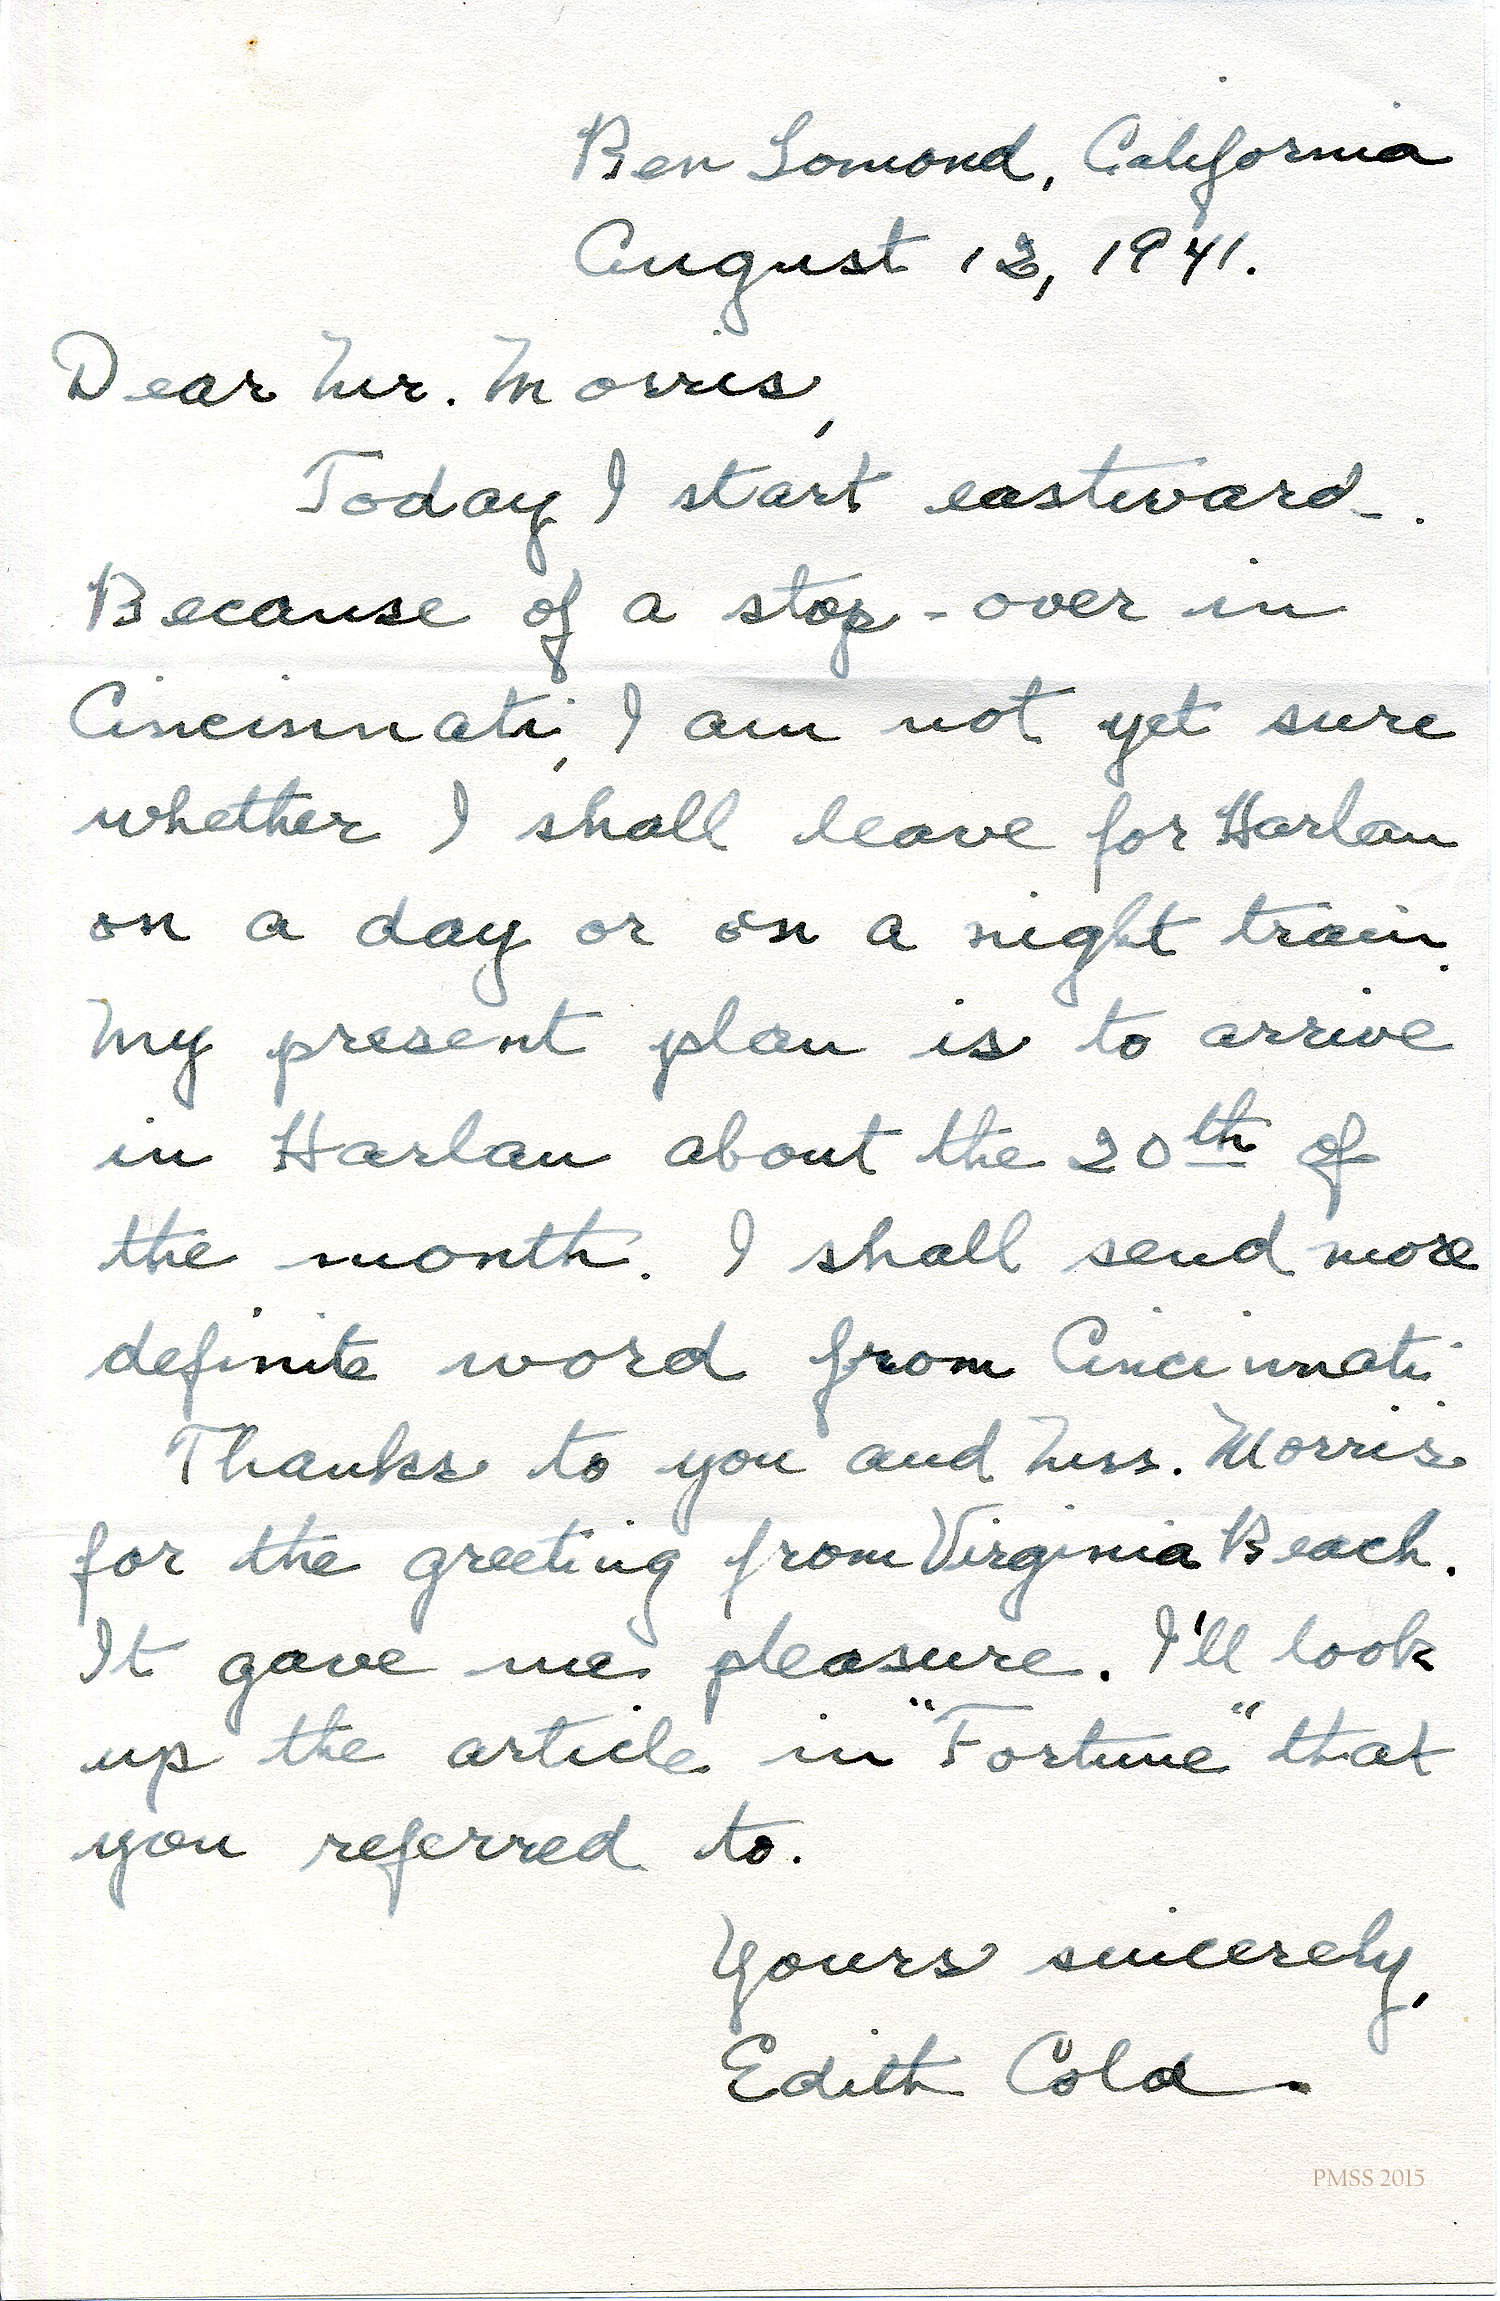 Ben Lomond, California
August 12, 1941.
Dear Mr. Morris,
Today I start eastward.
Because of a stop-over in
Cincinnati, I am not yet sure
whether I shall leave for Harlan
on a day or on a night train.
My present plan is to arrive
in Harlan about the 20th of
the month. I shall send more
definite word from Cincinnati.
Thanks to you and Mrs. Morris
for the greeting from Virginia Beach.
It gave me pleasure. I'll look
up the article in "Fortune" that
you referred to.
Yours sincerely,
Edith Cold.
PMSS 2015